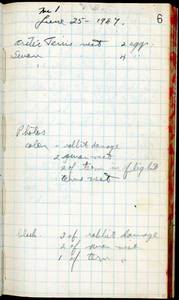 No 1
6
June 25 - 1967.
Arctic Terns nest 2 eggs.
Swan " 4 "
Photos
color - rabbit damage
2 swan nest
2 of tern in flight
tern nest
Black 2 of rabbit damage
2 of swan nest
1 of tern "